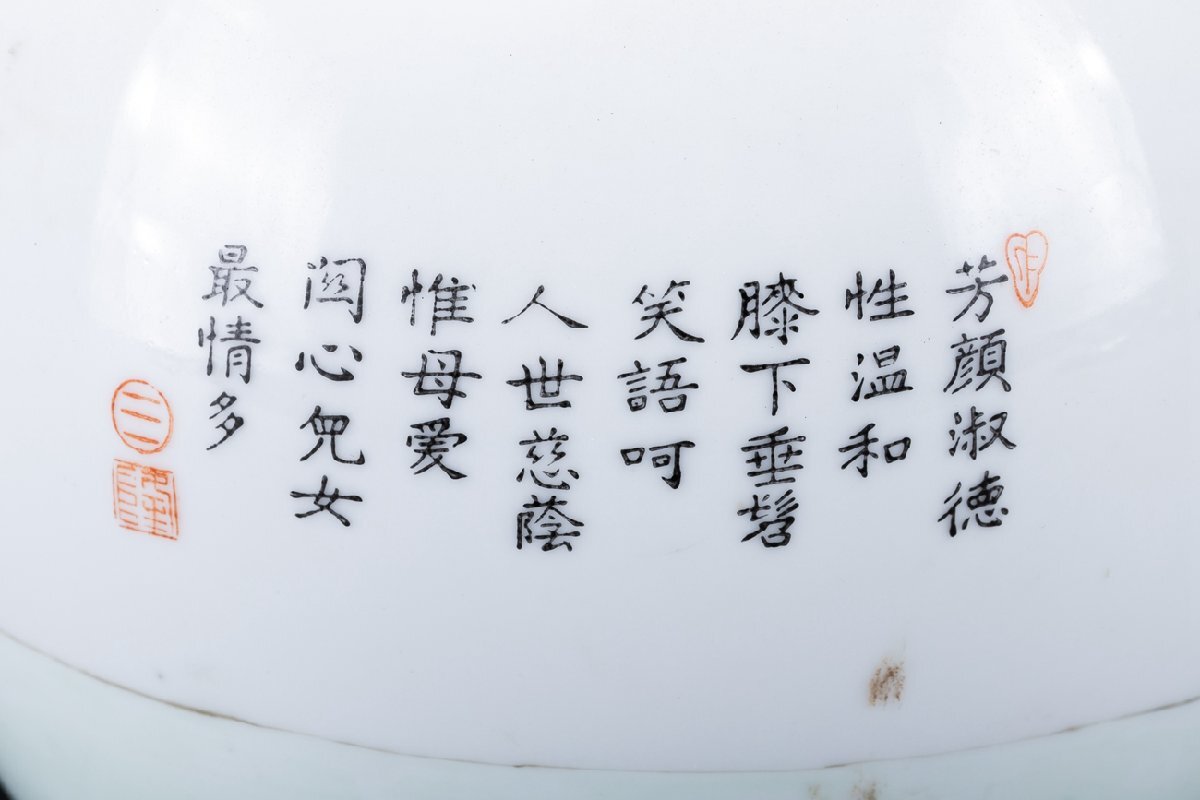 芳顔淑徳
性温和
膝下垂髫
笑語呵
人世慈蔭
惟母爱
関心兒女
最情多